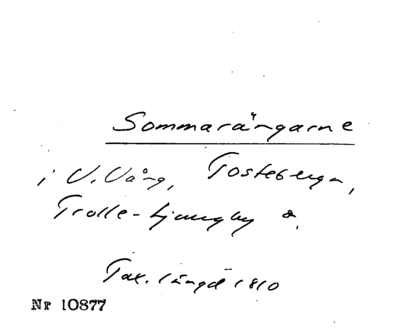 Sommarängarne
i V. Vång, Tosteberga,
Trolle-Ljungby &.
Tax. längd 1810
Nr 10877